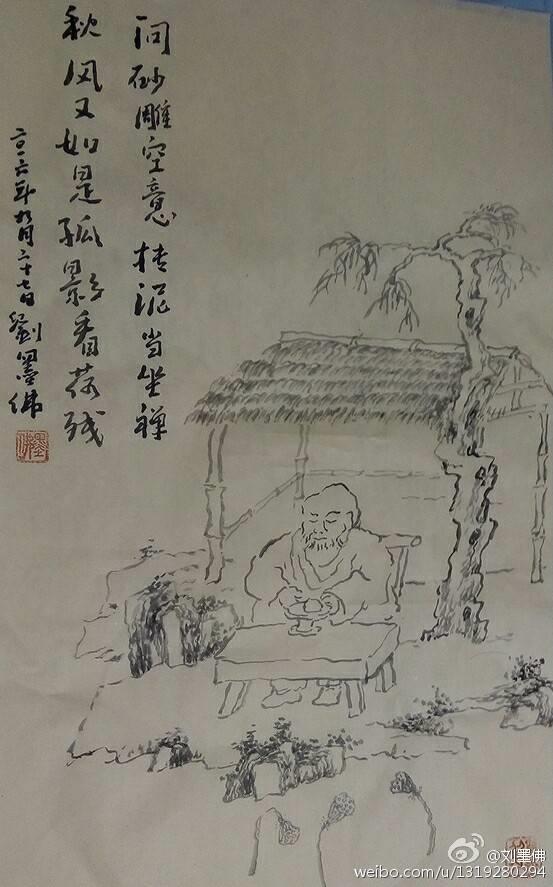 问砂雕空意泥当坐禅
秋风又如是孤影看荷残
二〇一六年九月二十七日劉墨佛
@刘墨佛
weibo.com/u/1319280294